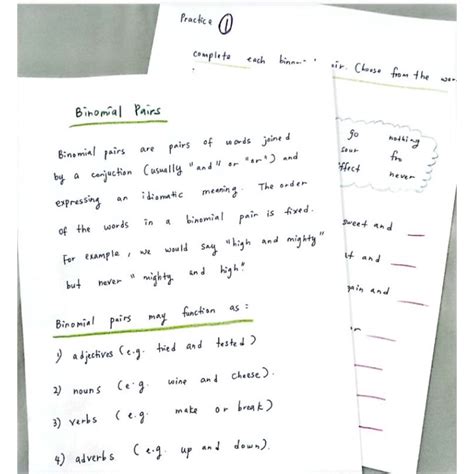 Binomial Pairs
Binomial pairs are pairs of words joined
by a conjuction (usually "and" or "or") and
expressing an idiomatic meaning. The order
of the words in a binomial pair is fixed.
For example, we would say "high and mighty"
but never "mighty and high".
Binomial pairs may function as:
1) adjectives (e.g. tried and tested)
2) nouns (e.g. wine and cheese).
3) verbs (e.g. make or break)
4) adverbs (e.g. up and down).
Practice 1
complete each pair. Choose from the
go nothing
sour fro
effect never
sweet and
and
again and
or